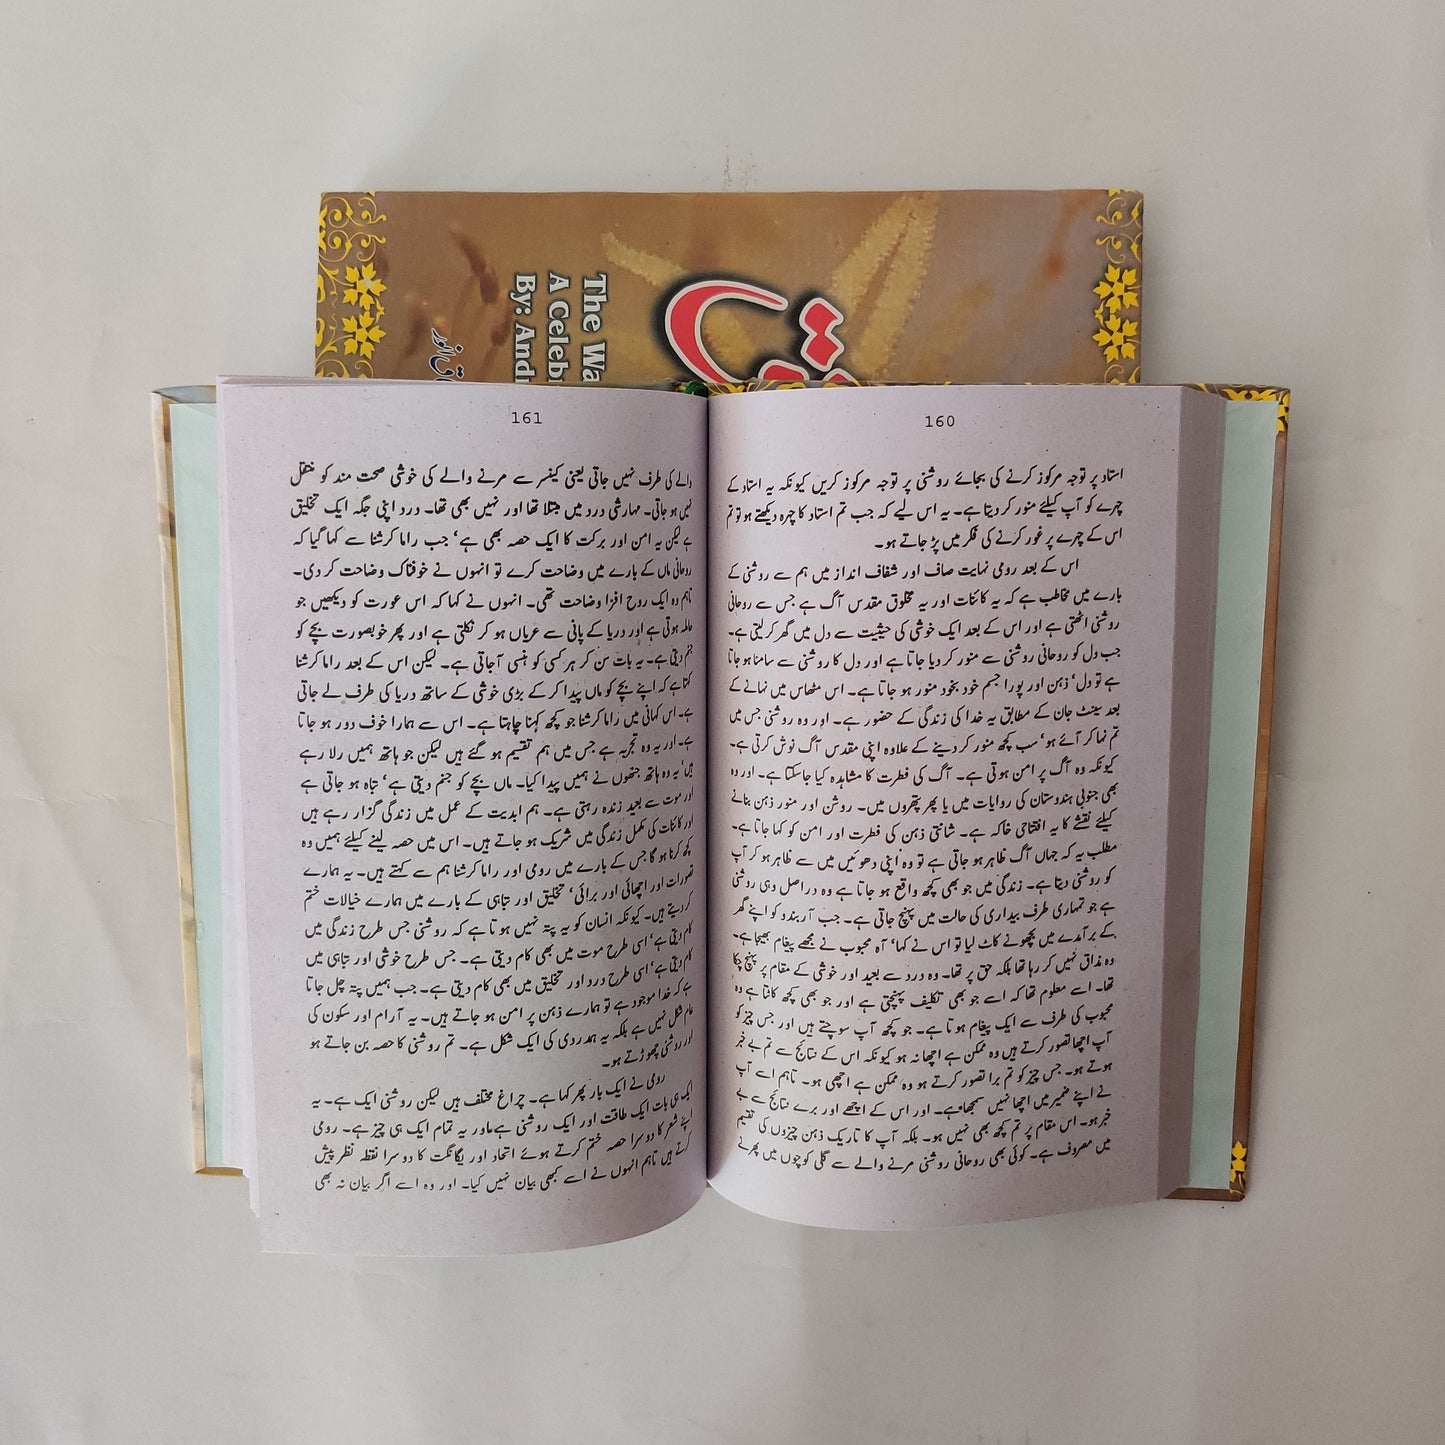 The Wa
A Celebr
By: Andr
160
استاد پر توجہ مرکوز کرنے کی بجائے روشنی پر توجہ مرکوز کریں کیونکہ یہ استاد کے
چہرے کو آپ کیلئے منور کر دیتا ہے۔ یہ اس لیے کہ جب تم استاد کا چہرہ دیکھتے ہو تو تم
اس کے چہرے پر غور کرنے کی فکر میں پڑ جاتے ہو۔
اس کے بعد رومی نہایت صاف اور شفاف انداز میں ہم سے روشنی کے
بارے میں مخاطب ہے کہ یہ کائنات اور یہ مخلوق مقدس آگ ہے جس سے روحانی
روشنی اٹھتی ہے اور اس کے بعد ایک خوشی کی حیثیت سے دل میں گھر کر لیتی ہے۔
جب دل کو روحانی روشنی سے منور کر دیا جاتا ہے اور دل کا روشنی سے سامنا ہو جاتا
ہے تو دل‘ ذہن اور پورا جسم خود بخود منور ہو جاتا ہے۔ اس مٹھاس میں نہانے کے
بعد سینٹ جان کے مطابق یہ خدا کی زندگی کے حضور ہے۔ اور وہ روشنی جس میں
تم نہا کر آئے ہو‘ سب کچھ منور کر دینے کے علاوہ اپنی مقدس آگ نوش کرتی ہے۔
کیونکہ وہ آگ پر امن ہوتی ہے۔ آگ کی فطرت کا مشاہدہ کیا جاسکتا ہے۔ اور وہ
بھی جنوبی ہندوستان کی روایات میں یا پھر پتھروں میں۔ روشن اور منور ذہن بنانے
کیلئے نقشے کا یہ افتتاحی خاکہ ہے۔ شانتی ذہن کی فطرت اور امن کو کہا جاتا ہے۔
مطلب یہ کہ جہاں آگ ظاہر ہو جاتی ہے تو وہ اپنی دھوئیں میں سے ظاہر ہو کر آپ
کو روشنی دیتا ہے۔ زندگی میں جو بھی کچھ واقع ہو جاتا ہے وہ دراصل وہی روشنی
ہے جو تمہاری طرف بیداری کی حالت میں پہنچ جاتی ہے۔ جب آربندو کو اپنے گھر
کے برآمدے میں بچھونے کاٹ لیا تو اس نے کہا‘ آہ محبوب نے مجھے پیغام بھیجا ہے۔
وہ مذاق نہیں کر رہا تھا بلکہ حق پر تھا۔ وہ درد سے بعید اور خوشی کے مقام پر پہنچ چکا
تھا۔ اسے معلوم تھا کہ اسے جو بھی تکلیف پہنچتی ہے اور جو بھی کچھ کاٹتا ہے وہ
محبوب کی طرف سے ایک پیغام ہوتا ہے۔ جو کچھ آپ سوچتے ہیں اور جس چیز کو
آپ اچھا تصور کرتے ہیں وہ ممکن ہے اچھا نہ ہو کیونکہ اس کے نتائج سے تم بے خبر
ہوتے ہو۔ جس چیز کو تم برا تصور کرتے ہو وہ ممکن ہے اچھی ہو۔ تاہم اسے آپ
نے اپنے ضمیر میں اچھا نہیں سمجھا ہے۔ اور اس کے اچھے اور برے نتائج سے بے
خبر ہو۔ اس مقام پر تم کچھ بھی نہیں ہو۔ بلکہ آپ کا تاریک ذہن چیزوں کی تقسیم
میں مصروف ہے۔ کوئی بھی روحانی روشنی مرنے والے سے گلی کوچوں میں پھرنے
161
والے کی طرف نہیں جاتی یعنی کینسر سے مرنے والے کی خوشی صحت مند کو منتقل
نہیں ہو جاتی۔ مہارشی درد میں مبتلا تھا اور نہیں بھی تھا۔ درد اپنی جگہ ایک تخلیق
ہے لیکن یہ امن اور برکت کا ایک حصہ بھی ہے‘ جب راما کرشنا سے کہا گیا کہ
روحانی ماں کے بارے میں وضاحت کرے تو انہوں نے خوفناک وضاحت کر دی۔
تاہم وہ ایک روح افزا وضاحت تھی۔ انہوں نے کہا کہ اس عورت کو دیکھیں جو
حاملہ ہوتی ہے اور دریا کے پانی سے عریاں ہو کر نکلتی ہے اور پھر خوبصورت بچے کو
جنم دیتی ہے۔ یہ بات سن کر ہر کسی کو ہنسی آ جاتی ہے۔ لیکن اس کے بعد راما کرشنا
کہتا ہے کہ اپنے بچے کو ماں پیدا کر کے بڑی خوشی کے ساتھ دریا کی طرف لے جاتی
ہے۔ اس کہانی میں راما کرشنا جو کچھ کہنا چاہتا ہے۔ اس سے ہمارا خوف دور ہو جاتا
ہے۔ اور یہ وہ تجربہ ہے جس میں ہم تقسیم ہو گئے ہیں لیکن جو ہاتھ ہمیں رلا رہے
ہیں‘ یہ وہ ہاتھ جنھوں نے ہمیں پیدا کیا۔ ماں بچے کو جنم دیتی ہے‘ تباہ ہو جاتی ہے
اور موت سے بعید زندہ رہتی ہے۔ ہم ابدیت کے عمل میں زندگی گزار رہے ہیں
اور کائنات کی مکمل زندگی میں شریک ہو جاتے ہیں۔ اس میں حصہ لینے کیلئے ہمیں وہ
کچھ کرنا ہو گا جس کے بارے میں رومی اور راما کرشنا ہم سے کہتے ہیں۔ یہ ہمارے
تصورات اور اچھائی اور برائی‘ تخلیق اور تباہی کے بارے میں ہمارے خیالات ختم
کر دیتے ہیں۔ کیونکہ انسان کو یہ پتہ نہیں ہوتا ہے کہ روشنی جس طرح زندگی میں
کام دیتی ہے‘ اسی طرح موت میں بھی کام دیتی ہے۔ جس طرح خوشی اور تباہی میں
کام دیتی ہے‘ اسی طرح درد اور تخلیق میں بھی کام دیتی ہے۔ جب ہمیں پتہ چل جاتا
ہے کہ خدا موجود ہے تو ہمارے ذہن پر امن ہو جاتے ہیں۔ یہ آرام اور سکون کی
عام شکل نہیں ہے بلکہ یہ ہمدردی کی ایک شکل ہے۔ تم روشنی کا حصہ بن جاتے ہو
اور روشنی چھوڑتے ہو۔
رومی نے ایک بار پھر کہا ہے۔ چراغ مختلف ہیں لیکن روشنی ایک ہے۔ یہ
ایک ہی بات ایک طاقت اور ایک روشنی ہے اور یہ تمام ایک ہی چیز ہے۔ رومی
اپنے شعر کا دوسرا حصہ ختم کرتے ہوئے اتحاد اور یگانگت کا دوسرا نقطہ نظر پیش
کرتے ہیں تاہم انہوں نے اسے کبھی بیان نہیں کیا۔ اور وہ اسے اگر بیان نہ بھی